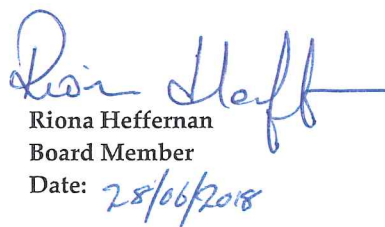 Riona Heffernan
Board Member
Date: 28/06/2018